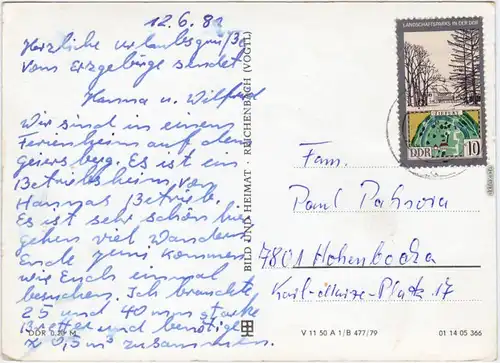 12.6.82
Herzliche Urlaubsgrüße
vom Erzgebirge sendet
Hanna u. Wilfried
Wir sind in einem
Ferienheim auf dem
Geiersberg. Es ist ein
Betriebsheim von
Hannas Betriebe.
Es ist sehr schön hie
gehen viel Wandern
Ende Juni kommen
wir Euch einmal
besuchen. Ich brauchte
25 und 40 mm starke
Bretter und benötige
2 0,5 m³ zusammen.
DDR 0,20 M
BILD UND HEIMAT · REICHENBACH (VOGTL)
LANDSCHAFTSPARKS IN DER DDR
TIEFURT
DDR 10
Fam.
Paul
7801 Hohenbocka
Karl-Marx-Platz 17
V 11 50 A 1/B 477/79
01 14 05 366